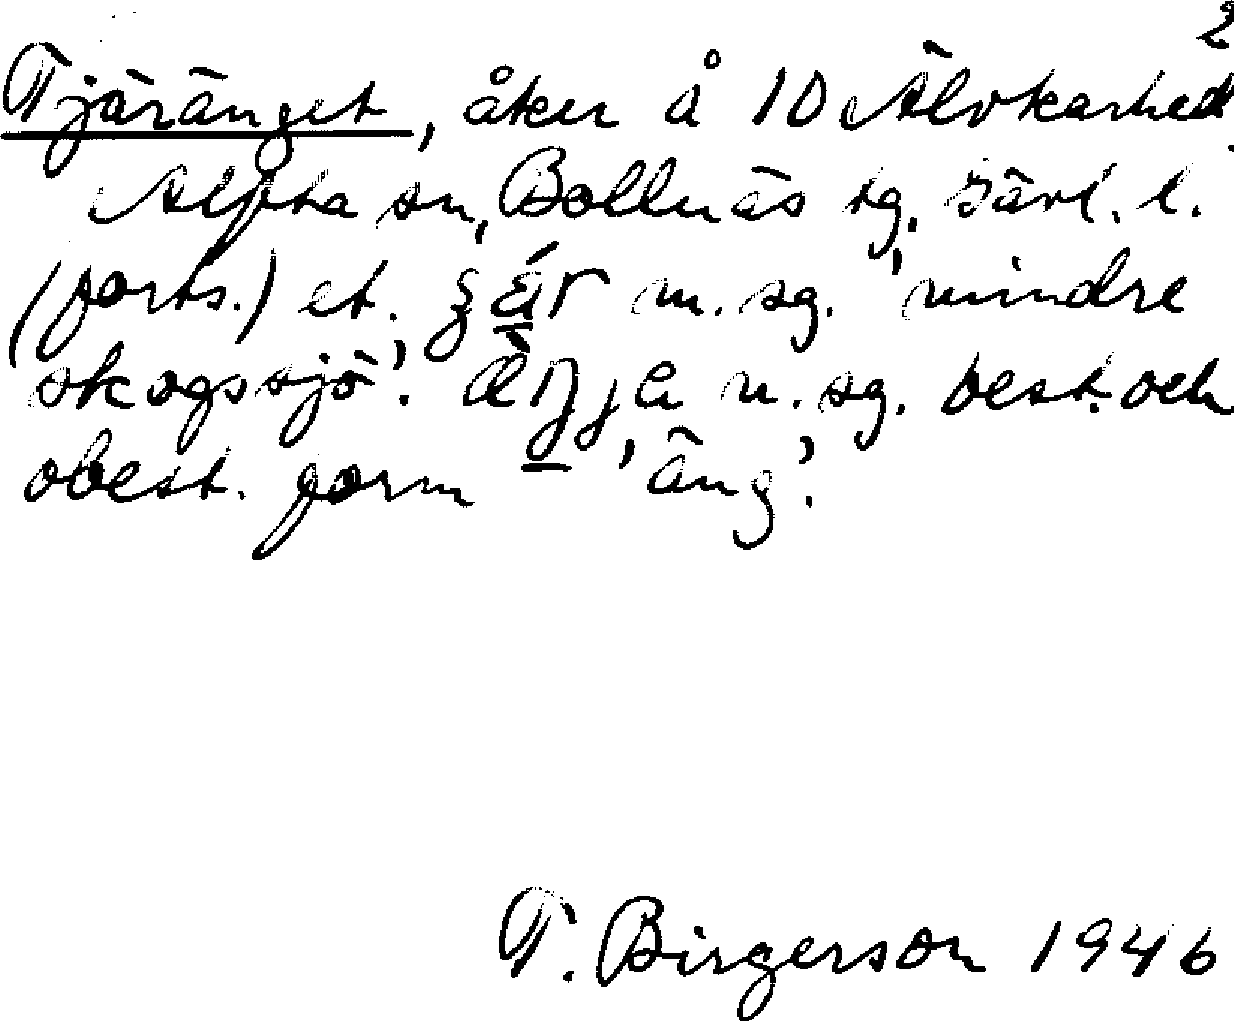 2
Tjäränget, åker å 10 Älvkarhed
Alfta sn, Bollnäs tg. Gävl. l.
(forts.) et. m. sg. 'mindre
skogssjö'. n. sg. best. och
obest. form 'äng'.
T. Birgerson 1946